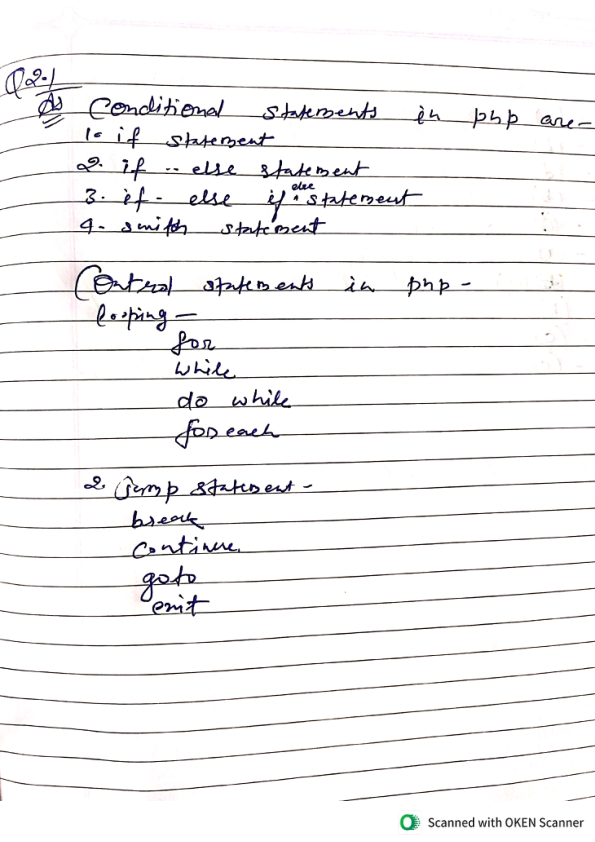 Q 2.1
As Conditional statements in php are-
1. if statement
2. if -- else statement
3. if - else if else statement
4. switch statement
Control statements in php -
looping —
for
while
do while
foreach
2. Jump statement -
break
continue
goto
exit
Scanned with OKEN Scanner